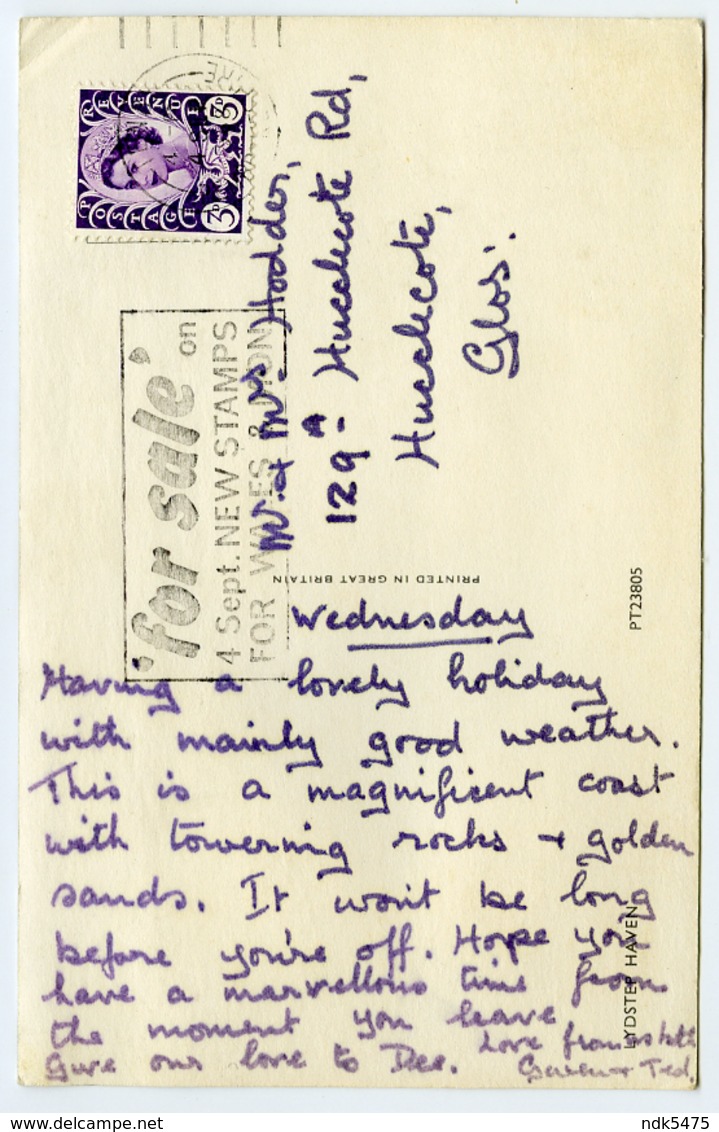 POSTAGE REVENUE
3D 3D
'for sale' on
4 Sept. NEW STAMPS
FOR WALES & MON
Mr. & Mrs. Hodder,
129A Hucclecote Rd,
Hucclecote,
Glos.
PRINTED IN GREAT BRITAIN
PT23805
LYDSTEP HAVEN
Wednesday
Having a lovely holiday
with mainly good weather.
This is a magnificent coast
with towering rocks & golden
sands. It won't be long
before you're off. Hope you
have a marvellous time from
the moment you leave
Give our love to Dee. Love from
& Ted.
ndk5475